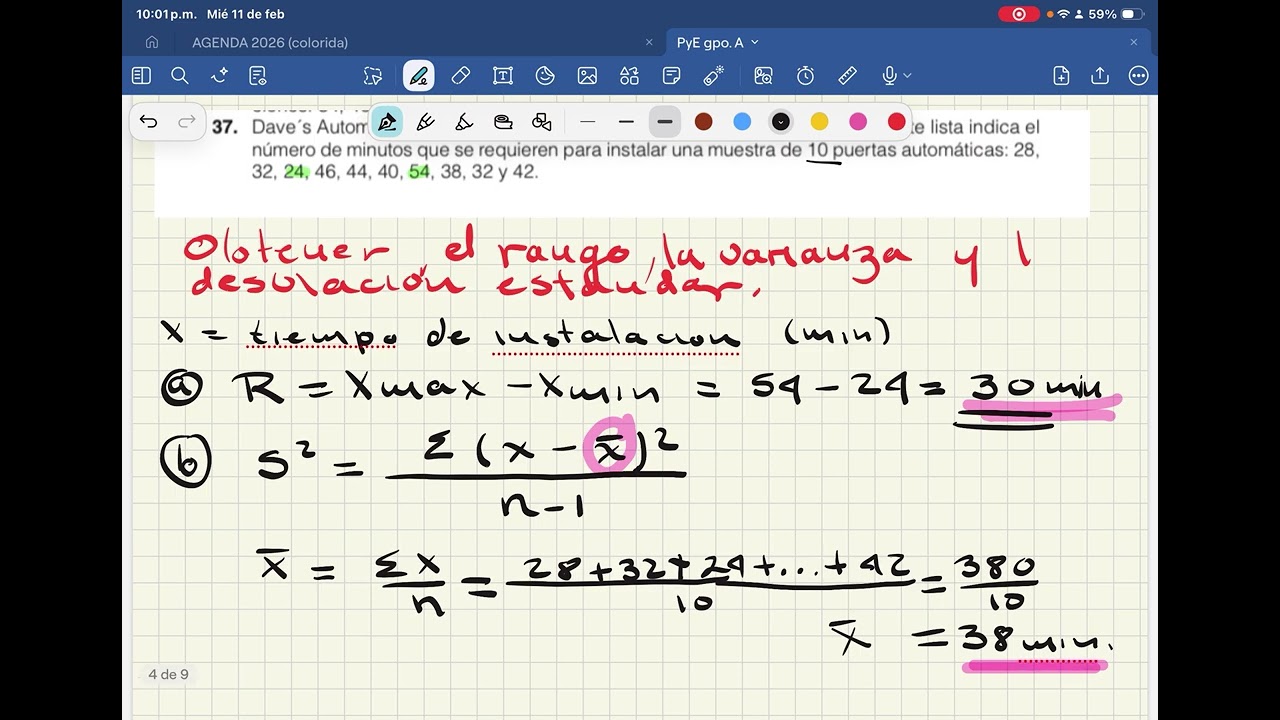 10:01 p.m. Mié 11 de feb
59%
AGENDA 2026 (colorida)
PyE gpo. A
37. Dave´s Autom te lista indica el
número de minutos que se requieren para instalar una muestra de 10 puertas automáticas: 28,
32, 24, 46, 44, 40, 54, 38, 32 y 42.
Obtener el rango, la varianza y l
desviación estándar.
x = tiempo de instalacion (min)
a R = Xmax - Xmin = 54 - 24 = 30 min
b S² = Σ(x - x̄)² / n-1
x̄ = Σx / n = 28+32+24+...+42 / 10 = 380 / 10
x̄ = 38 min.
4 de 9